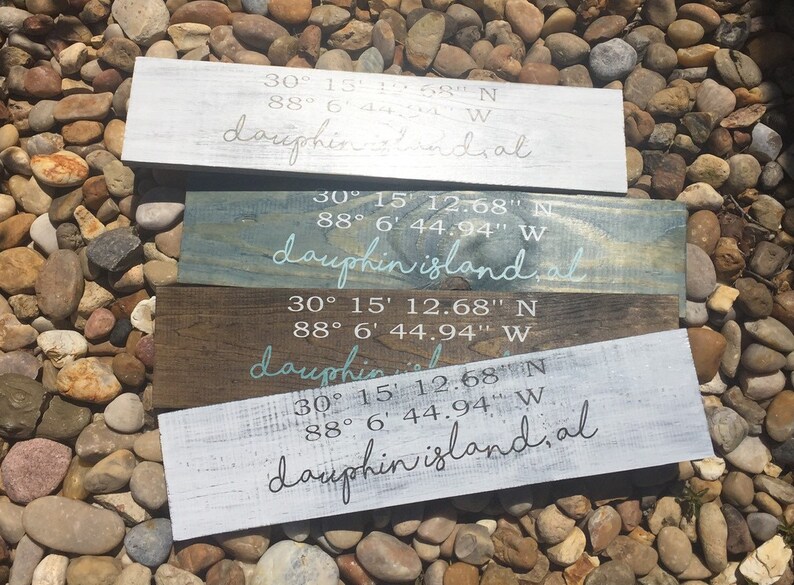 30° 15' 12.68" N
88° 6' 44.94" W
dauphin island, al
30° 15' 12.68" N
88° 6' 44.94" W
dauphin island, al
30° 15' 12.68" N
88° 6' 44.94" W
dauphin
30° 15' 12.68" N
88° 6' 44.94" W
dauphin island, al